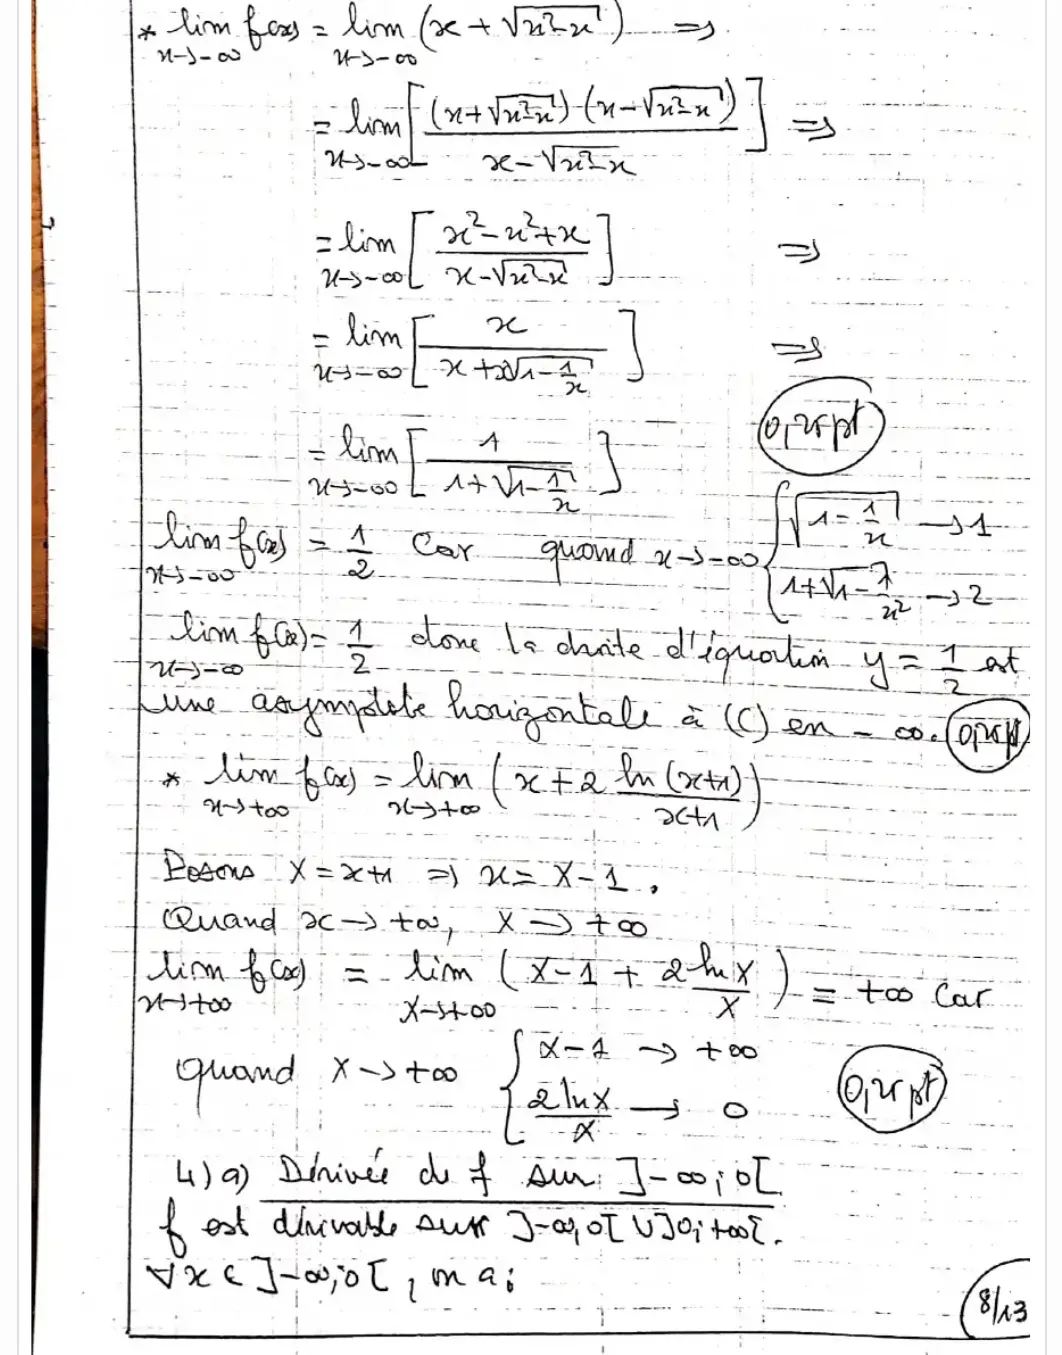 * lim f(x) = lim (x + √(x²-x)) ⇒
x→-∞ x→-∞
= lim [ (x+√(x²-x)) (x-√(x²-x)) / x-√(x²-x) ] ⇒
x→-∞
= lim [ x²-x²+x / x-√(x²-x) ] ⇒
x→-∞
= lim [ x / x+x√(1-1/x) ] ⇒
x→-∞
0,25pt
= lim [ 1 / 1+√(1-1/x) ]
x→-∞
lim f(x) = 1/2 car quand x→-∞ { √(1-1/x) → 1
x→-∞ 1+√(1-1/x²) → 2
lim f(x) = 1/2 donc la droite d'équation y = 1/2 est
x→-∞
une asymptote horizontale à (C) en -∞. 0,25pt
* lim f(x) = lim (x + 2 ln(x+1) / x+1)
x→+∞ x→+∞
Posons X = x+1 ⇒ x = X-1.
Quand x → +∞, X → +∞
lim f(x) = lim (X-1 + 2lnX / X) = +∞ car
x→+∞ X→+∞
quand X→+∞ { X-1 → +∞
2lnX / X → 0
0,25pt
4) a) Dérivée de f sur ]-∞; 0[
f est dérivable sur ]-∞, 0[ ∪ ]0; +∞[.
∀x ∈ ]-∞; 0[, on a:
8/13